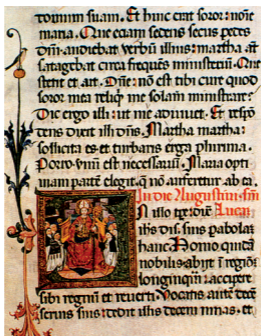 domum suam. Et huic erat soror: noīe
maria. Que eciam secens secus pedes
dñi: audiebat verbū illius: martha aūt
satagebat circa frequēs ministeriū. Que
stetit et ait. Dñe: nō est tibi cure quod
soror mea reliqt me solam ministrare:
Dic ergo illi: ut me adiuvet. Et respō
dens dixit illi dñs. Martha martha:
sollicita es et turbaris erga plurima.
Porro vnū est necessariū. Maria opti
mam partē elegit: q̄ nō auferetur ab ea.
In die Augustini
N illo tpr̄e Lucam
ihs dis. suis pabolā
hanc. Homo quidā
nobilis abijt ī regiōē
longinquā: accipere
sibi regnū et reverti. Vocatis autē decē
servis suis: dedit illis decem mnas. et